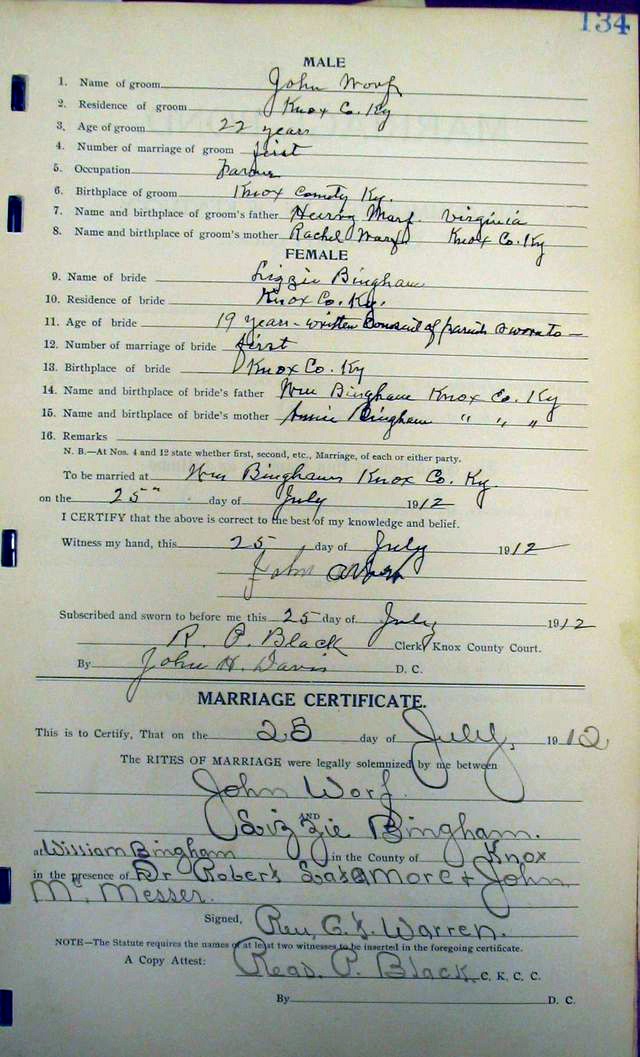 134
MALE
1. Name of groom John Worf
2. Residence of groom Knox Co. Ky
3. Age of groom 22 years
4. Number of marriage of groom first
5. Occupation Farmer
6. Birthplace of groom Knox County Ky.
7. Name and birthplace of groom's father Henry Warf. Virginia
8. Name and birthplace of groom's mother Rachel Warf Knox Co. Ky
FEMALE
9. Name of bride Lizzie Bingham
10. Residence of bride Knox Co. Ky.
11. Age of bride 19 years - written Consent of parents sworn to -
12. Number of marriage of bride first
13. Birthplace of bride Knox Co. Ky
14. Name and birthplace of bride's father Wm Bingham Knox Co. Ky
15. Name and birthplace of bride's mother Annie Bingham " " "
16. Remarks
N. B.—At Nos. 4 and 12 state whether first, second, etc., Marriage, of each or either party.
To be married at Wm Binghams Knox Co. Ky.
on the 25" day of July 1912
I CERTIFY that the above is correct to the best of my knowledge and belief.
Witness my hand, this 25 day of July 1912
John
Subscribed and sworn to before me this 25 day of July 1912
R. P. Black Clerk Knox County Court.
By John H. Davis D. C.
MARRIAGE CERTIFICATE.
This is to Certify, That on the 25 day of July, 1912
The RITES OF MARRIAGE were legally solemnized by me between
John Worf
AND
Lizzie Bingham.
at William Bingham in the County of Knox
in the presence of Dr Robert & John
Mc Messer.
Signed, Rev, G. Warren.
NOTE—The Statute requires the names of at least two witnesses to be inserted in the foregoing certificate.
A Copy Attest: Read. P. Black C. K. C. C.
By D. C.